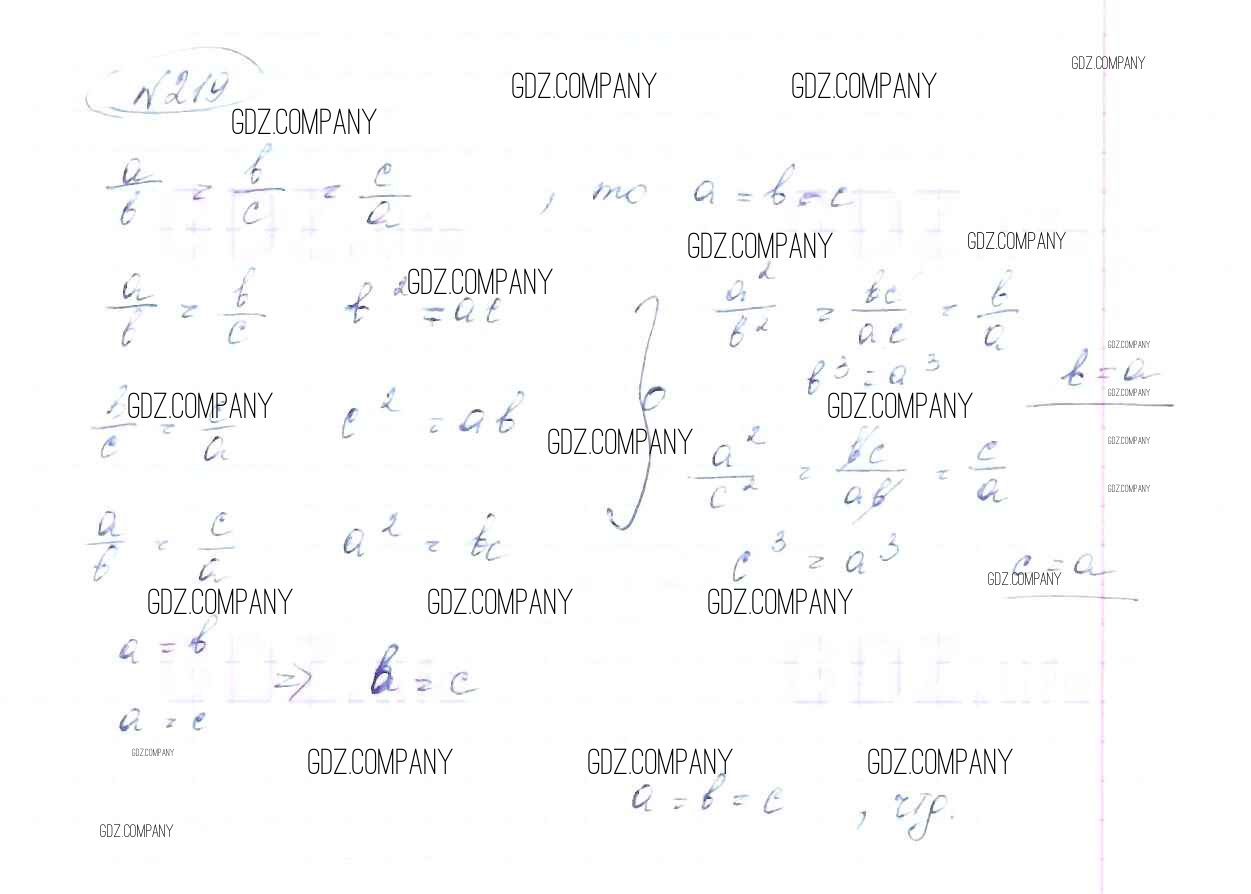 №219
GDZ.COMPANY GDZ.COMPANY GDZ.COMPANY
GDZ.COMPANY
a/b = b/c = c/a , то a = b = c
GDZ.COMPANY GDZ.COMPANY
GDZ.COMPANY
a/b = b/c b² = ac a²/b² = bc/ac = b/a
GDZ.COMPANY
b³ = a³ b = a
GDZ.COMPANY
GDZ.COMPANY GDZ.COMPANY
b/c = c/a c² = ab
GDZ.COMPANY GDZ.COMPANY
a²/c² = bc/ab = c/a
GDZ.COMPANY
a/b = c/a a² = bc c³ = a³ c = a
GDZ.COMPANY
GDZ.COMPANY GDZ.COMPANY GDZ.COMPANY
a = b
=> b = c
a = c
GDZ.COMPANY
GDZ.COMPANY GDZ.COMPANY GDZ.COMPANY
a = b = c , чтд.
GDZ.COMPANY